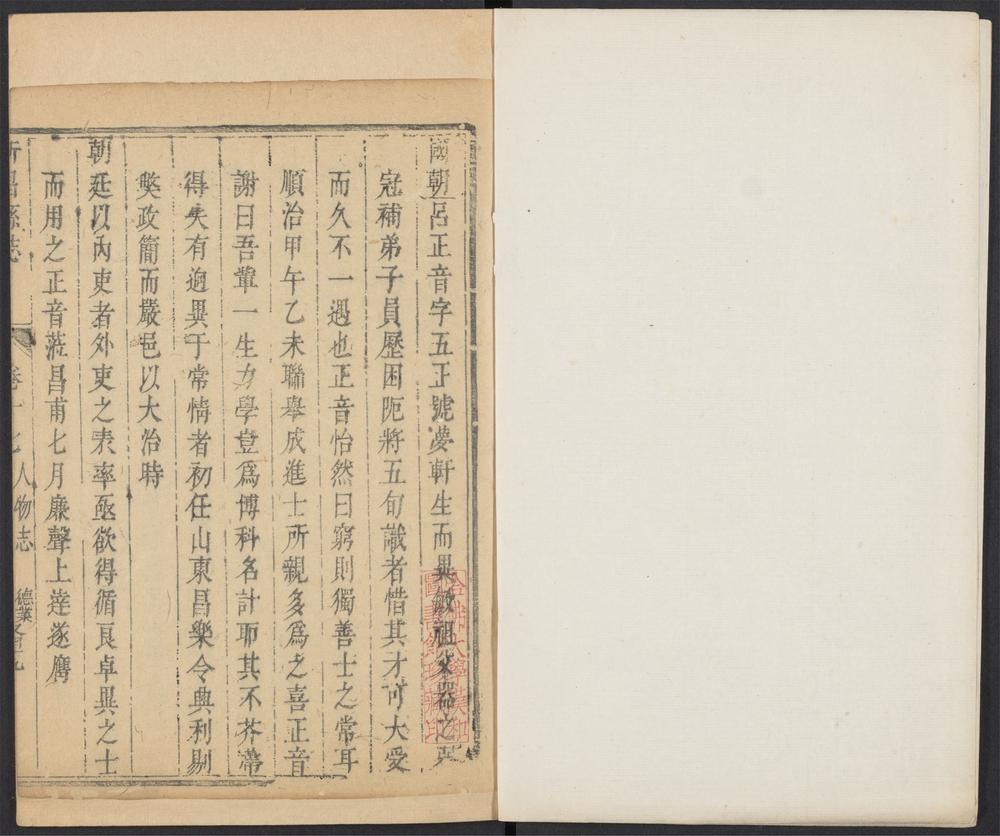 國朝呂正音字五正號夢軒生而異敏祖父器之
冠補弟子員歷困阨將五旬識者惜其才可大受
而久不一遇也正音怡然曰窮則獨善士之常耳
順治甲午乙未聯舉成進士所親多為之喜正音
謝曰吾輩一生力學豈為博科名計耶其不芥滯
得失有逈異于常情者初任山東昌樂令興利剔
獘政簡而嚴邑以大治時
朝廷以內吏者外吏之表率亟欲得循良卓異之士
而用之正音蒞昌甫七月廉聲上達遂膺
昌縣志 卷十七人物志 德業
哈佛大學漢和圖書館珍藏印